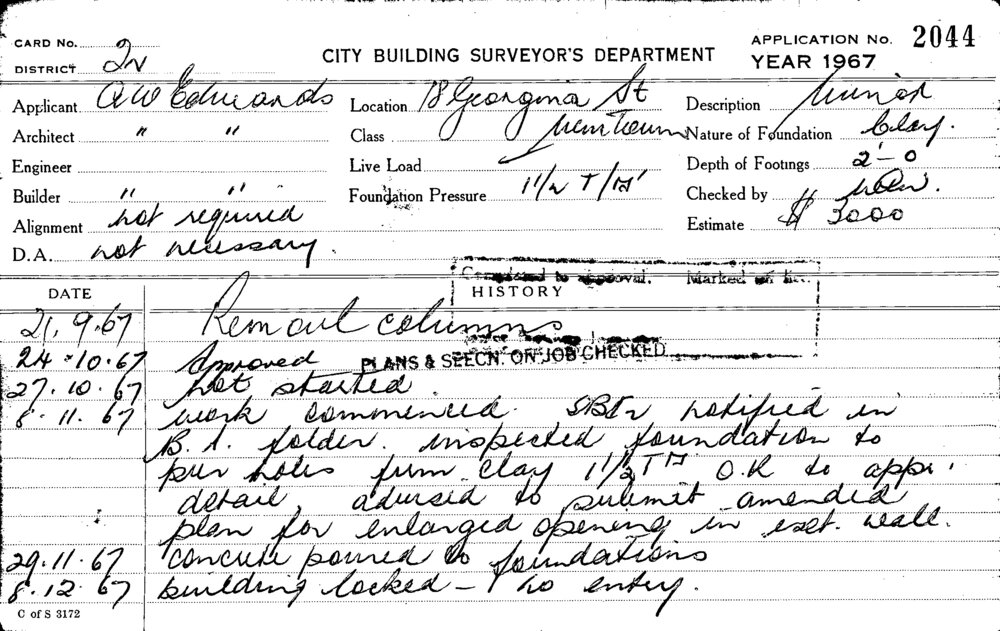 CARD No.
DISTRICT 2N
CITY BUILDING SURVEYOR'S DEPARTMENT
APPLICATION No. 2044
YEAR 1967
Applicant AW Edwards
Location 18 Georgina St
Newtown
Description Minor
Architect " "
Class
Nature of Foundation Clay.
Engineer
Live Load
Depth of Footings 2'-0
Builder " "
Foundation Pressure 1 1/2 T/□'
Checked by
Alignment not required
Estimate $ 3000
D.A. not necessary.
Marked
HISTORY
DATE
21.9.67 Remove columns
24.10.67 Approved
PLANS & SPECN. ON JOB CHECKED
27.10.67 not started.
8.11.67 work commenced. notified in
B.I. folder. inspected foundation to
pier holes firm clay 1 1/2 T□ O.K to appr.
detail, advised to submit amended
plan for enlarged opening in ext. wall.
29.11.67 concrete poured to foundations
8.12.67 building locked - no entry.
C of S 3172